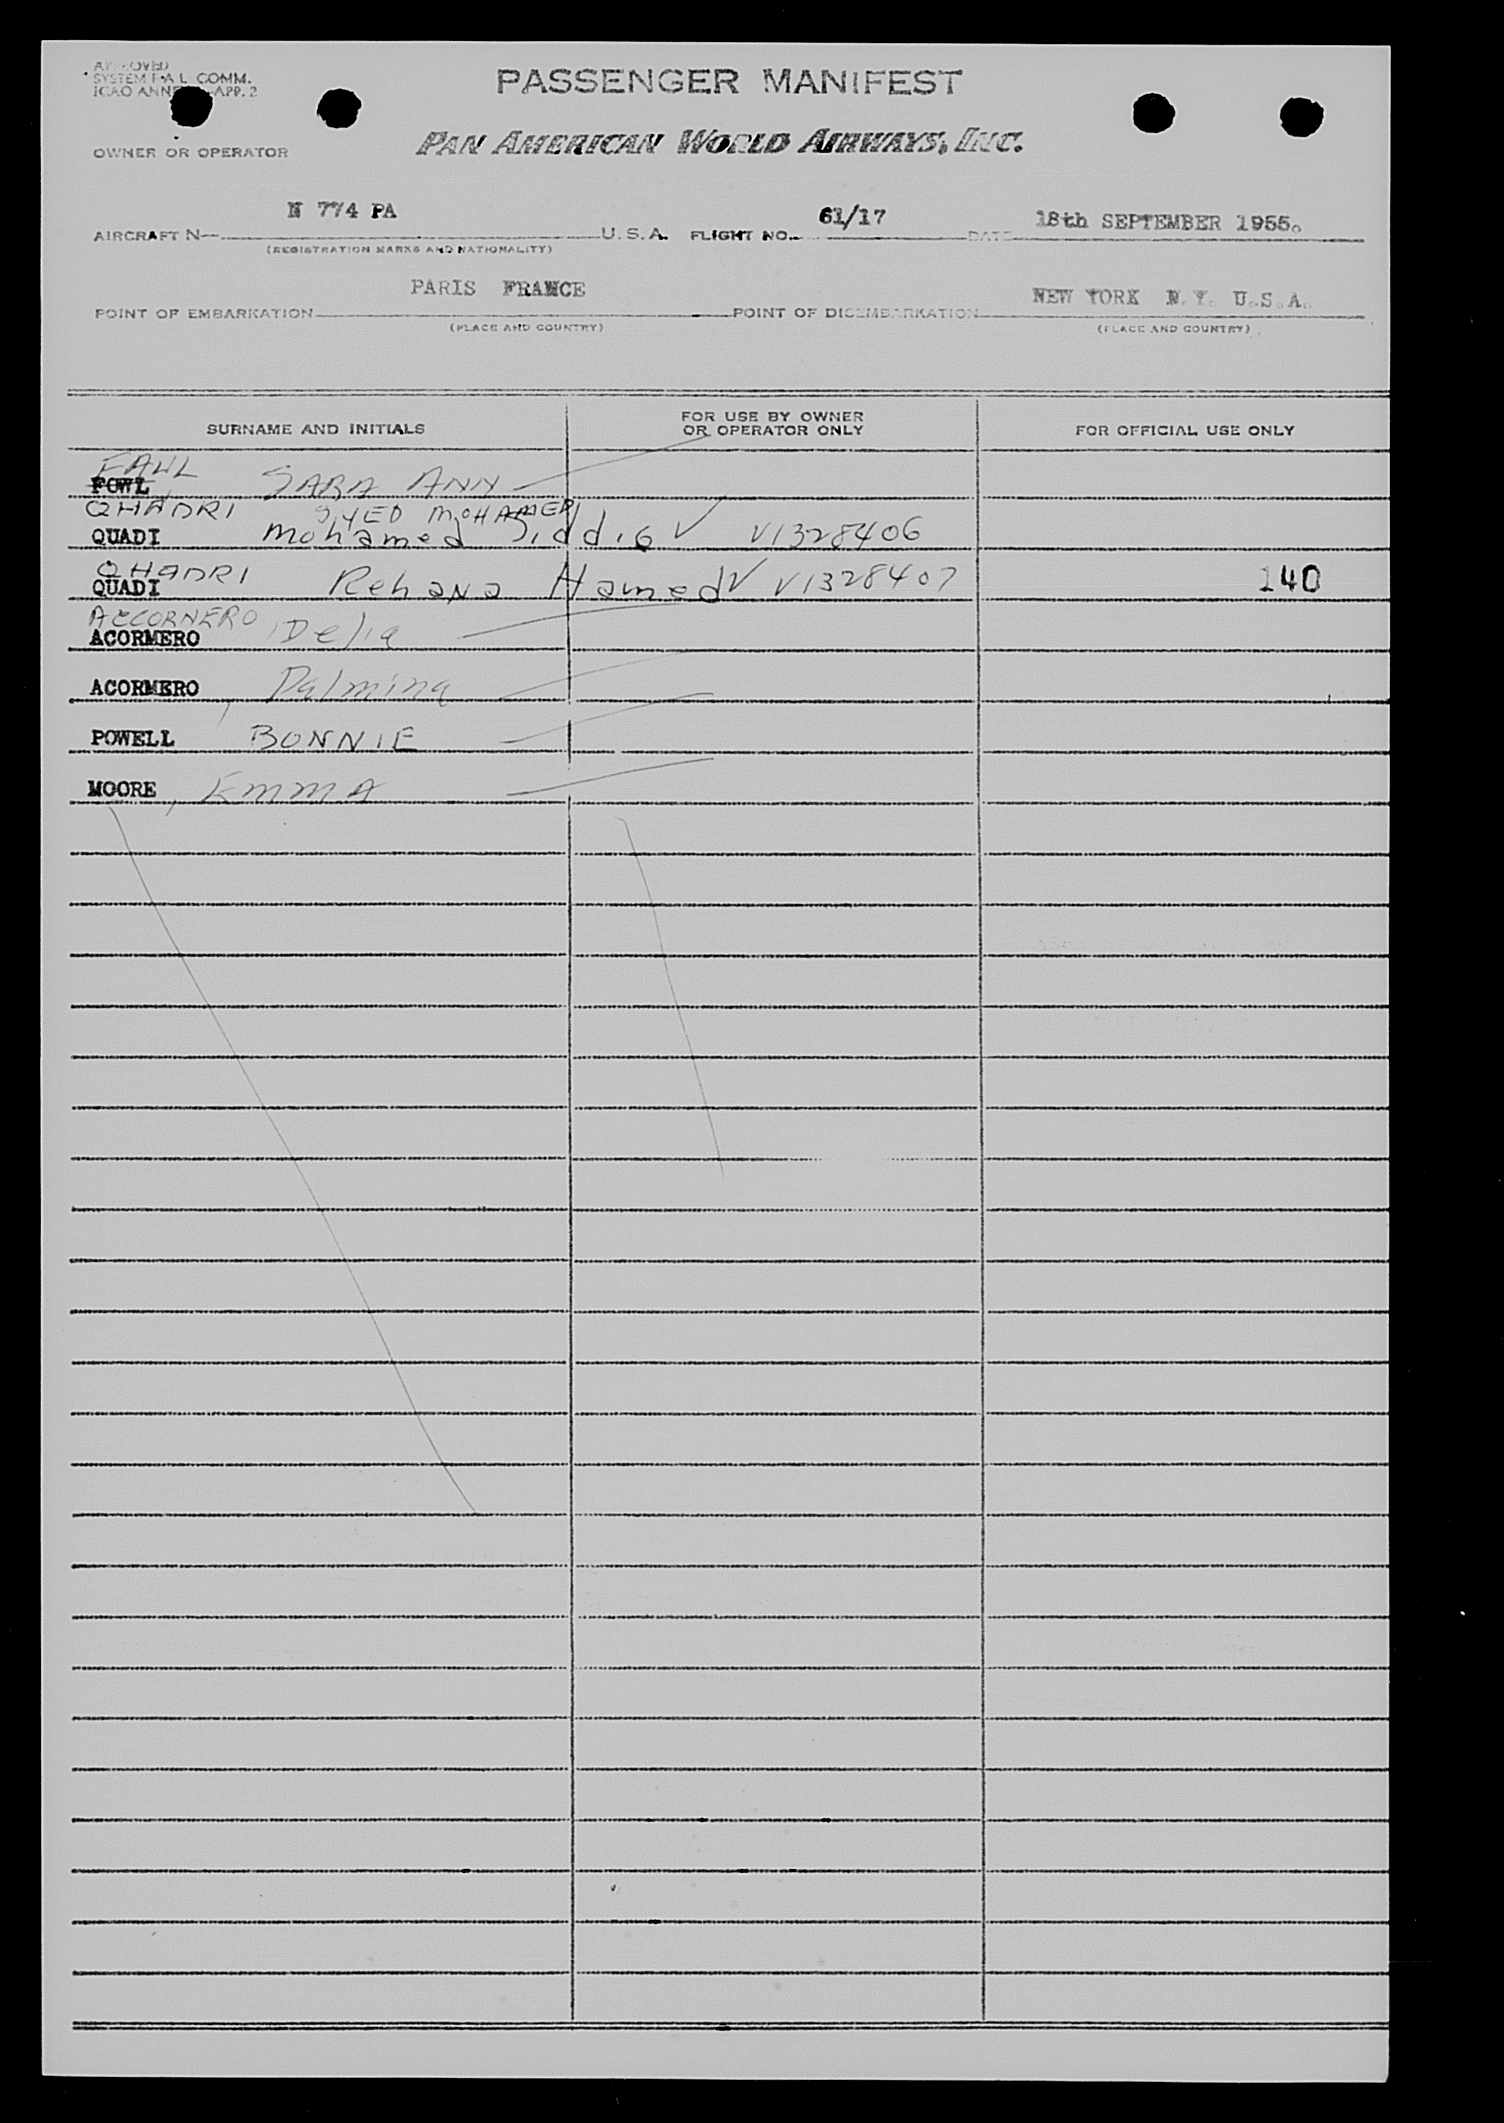 APPROVED
SYSTEM F.A.L. COMM.
ICAO ANNEX APP. 2
PASSENGER MANIFEST
PAN AMERICAN WORLD AIRWAYS, INC.
OWNER OR OPERATOR
N 774 PA 61/17 18th SEPTEMBER 1955.
AIRCRAFT N— U.S.A. FLIGHT NO. DATE
(REGISTRATION MARKS AND NATIONALITY)
PARIS FRANCE NEW YORK N.Y. U.S.A.
POINT OF EMBARKATION POINT OF DISEMBARKATION
(PLACE AND COUNTRY) (PLACE AND COUNTRY)
SURNAME AND INITIALS FOR USE BY OWNER OR OPERATOR ONLY FOR OFFICIAL USE ONLY
FAWL
FOWL SARA ANN
QHADRI SYED MOHAMED
QUADI Mohamed Siddiq V1328406
QHADRI
QUADI Rehana Hamed V1328407 140
ACCORNERO
ACORMERO Delia
ACORMERO Palmina
POWELL, BONNIE
MOORE, EMMA